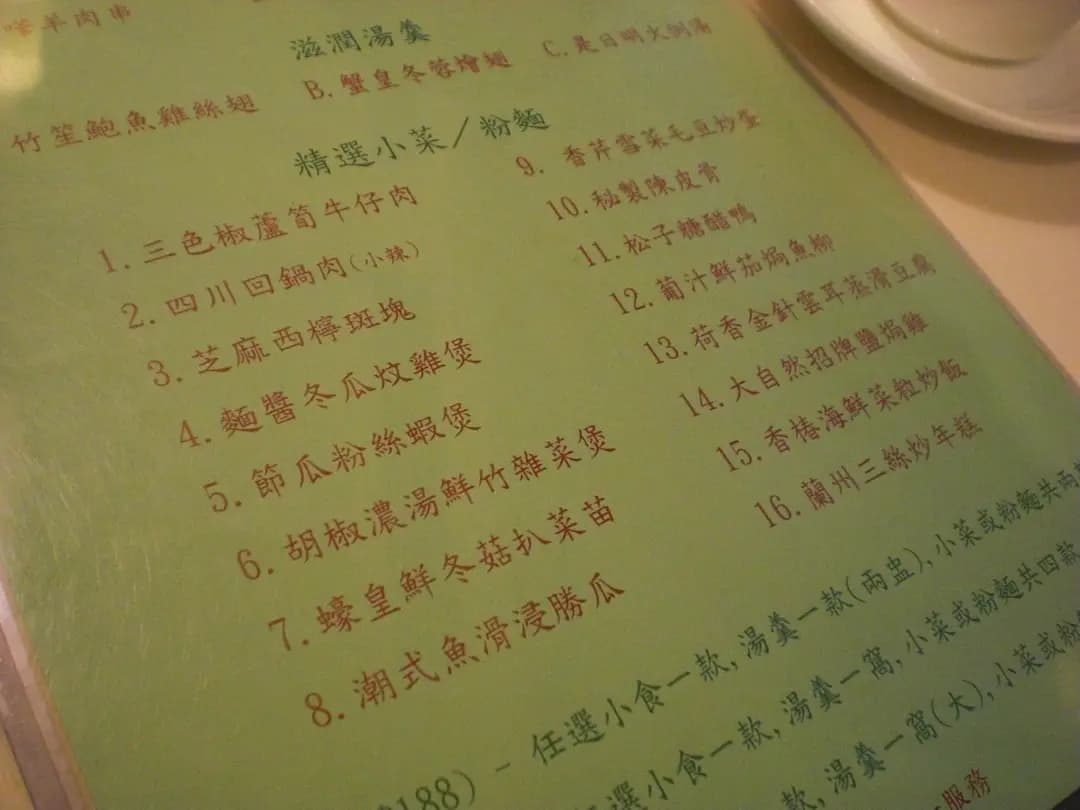 羊肉串
滋潤湯羹
竹笙鮑魚雞絲翅
B. 蟹皇冬蓉燴翅
C. 是日明火例湯
精選小菜／粉麵
1. 三色椒蘆筍牛仔肉
2. 四川回鍋肉(小辣)
3. 芝麻西檸斑塊
4. 麵醬冬瓜炆雞煲
5. 節瓜粉絲蝦煲
6. 胡椒濃湯鮮竹雜菜煲
7. 蠔皇鮮冬菇扒菜苗
8. 潮式魚滑浸勝瓜
9. 香芹雪菜毛豆炒蛋
10. 秘製陳皮骨
11. 松子糖醋鴨
12. 葡汁鮮茄焗魚柳
13. 荷香金針雲耳蒸滑豆腐
14. 大自然招牌鹽焗雞
15. 香椿海鮮菜粒炒飯
16. 蘭州三絲炒年糕
188) - 任選小食一款,湯羹一款(兩盅),小菜或粉麵共兩
選小食一款,湯羹一窩,小菜或粉麵共四款
款,湯羹一窩(大),小菜或粉
服務